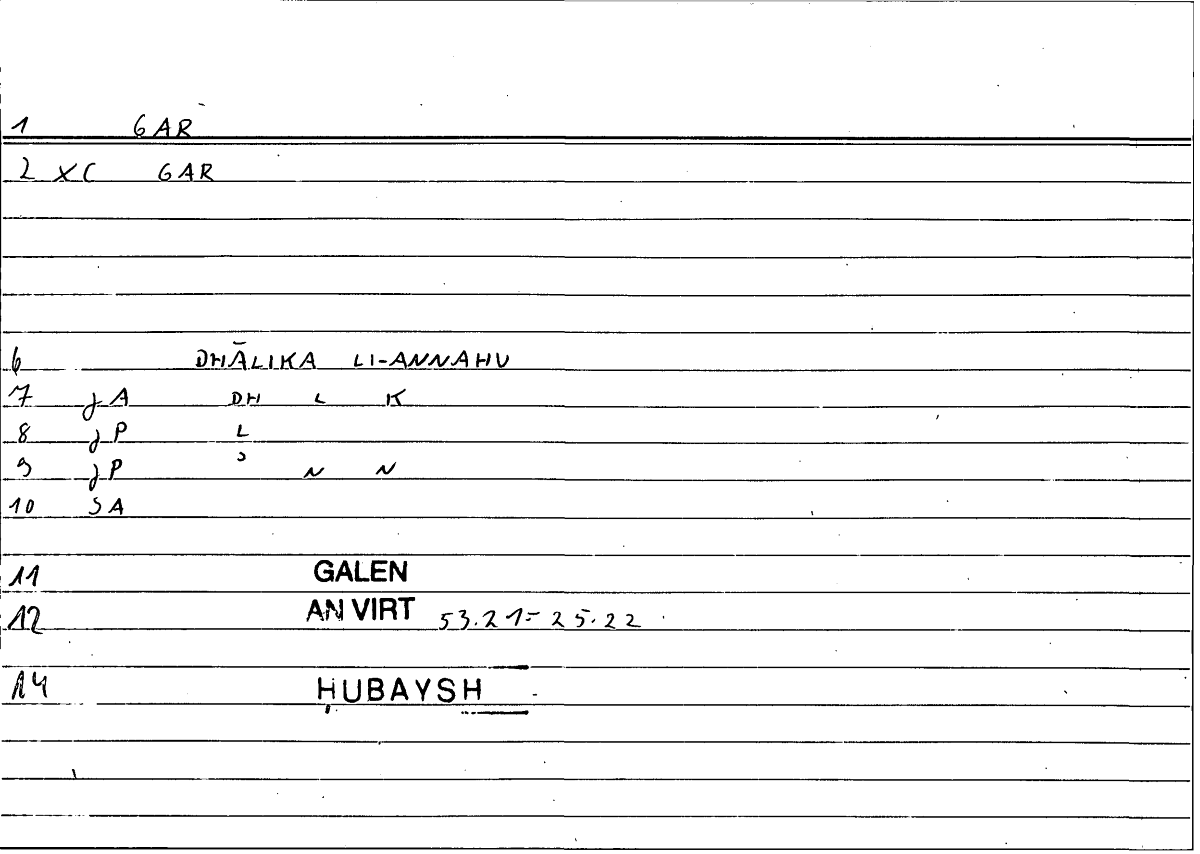 1 GAR
2 XC GAR
6 DHĀLIKA LI-ANNAHU
7 JA DH L K
8 JP L
9 JP ʾ N N
10 SA
11 GALEN
12 AN VIRT 53.21=25.22
14 ḤUBAYSH